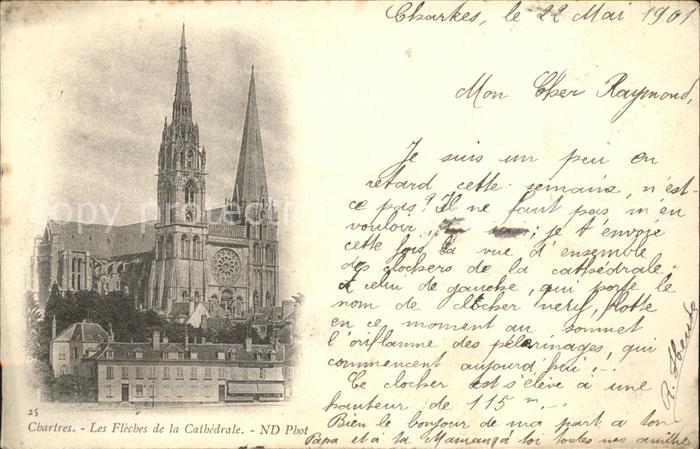 Chartres, le 22 Mai 1901
Mon Cher Raymond,
Je suis un peu en
retard cette semaine, n'est-
ce pas? Il ne faut pas m'en
vouloir, ; je t'envoie
cette fois la vue d'ensemble
des clochers de la cathédrale:
à celui de gauche, qui porte le
nom de clocher neuf, flotte
en ce moment au sommet
l'oriflamme des pélerinages, qui
commencent aujourd'hui!...
Ce clocher est s'élève à une
hauteur de 115m...
Bien le bonjour de ma part à ton
Papa et à ta Maman à toi toutes mes amitiés
R.
copyright protected
25
Chartres. - Les Flèches de la Cathédrale. - ND Phot